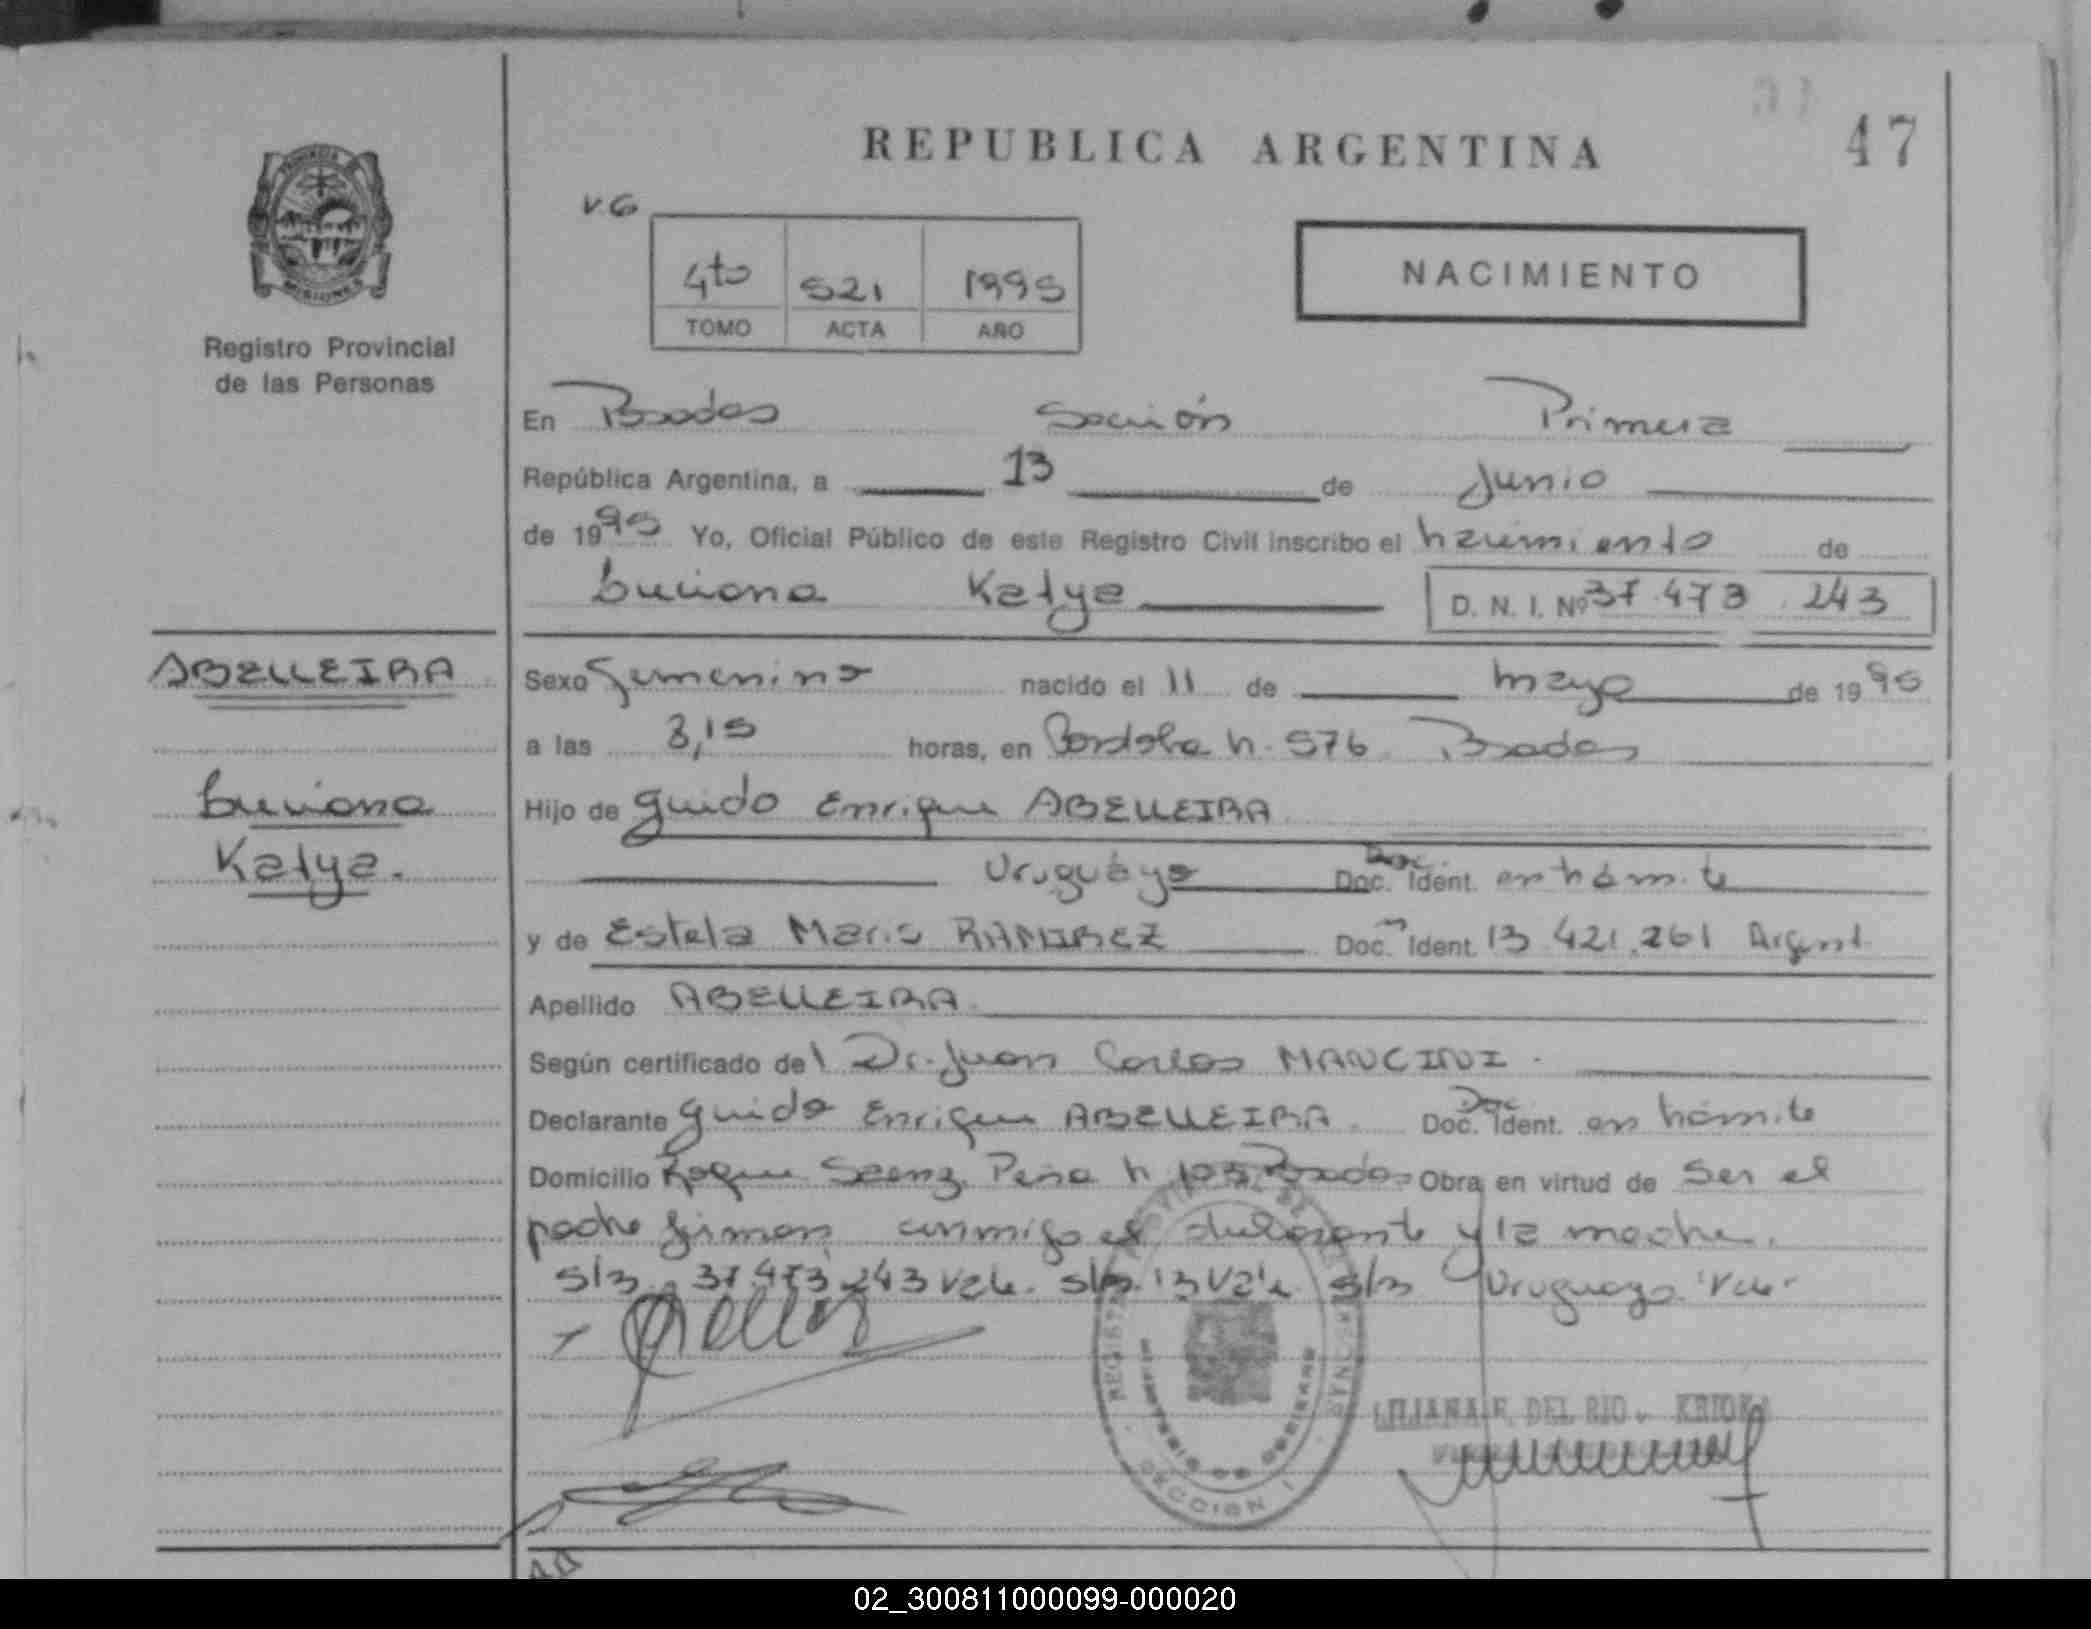 47
REPUBLICA ARGENTINA
V.G
4to 521 1995
TOMO ACTA AÑO
NACIMIENTO
PROVINCIA
MISIONES
Registro Provincial
de las Personas
En Posadas Sección Primera
República Argentina, a 13 de Junio
de 1995 Yo, Oficial Público de este Registro Civil inscribo el nacimiento de
Luciana Katya D. N. I. Nº 37.473.243
ABELLEIRA
Luciana
Katya.
Sexo Femenino nacido el 11 de mayo de 1995
a las 8,15 horas, en Cordoba n. 576 Posadas
Hijo de Guido Enrique ABELLEIRA
Uruguayo Doc. Ident. en trámite
y de Estela Maris RAMIREZ Doc. Ident. 13.421.261 Argent.
Apellido ABELLEIRA
Según certificado del Dr. Juan Carlos MANCINI.
Declarante Guido Enrique ABELLEIRA. Doc. Ident. en trámite
Domicilio Roque Saenz Peña n 103 Posadas Obra en virtud de Ser el
padre firman conmigo el declarante y la madre.
s/r 37.473.243 Vale. s/r. 13 Vale. s/r Uruguayo Vale.
LILIANA F. DEL RIO
SECCION I
MINISTERIO DE GOBIERNO
02_300811000099-000020